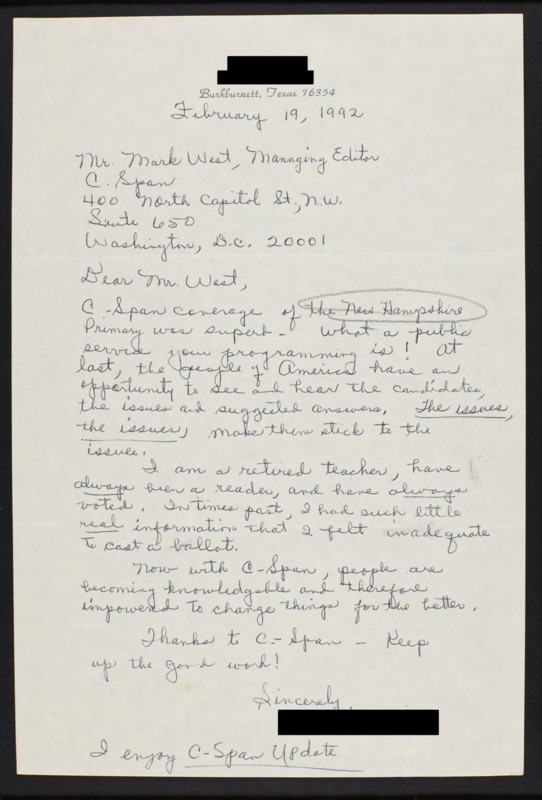 Burkburnett, Texas 76354
February 19, 1992
Mr. Mark West, Managing Editor
C. Span
400 North Capitol St., N.W.
Suite 650
Washington, D.C. 20001
Dear Mr. West,
C-Span coverage of the New Hampshire
Primary was superb - What a public
service your programming is! At
last, the people of America have an
opportunity to see and hear the candidates,
the issues and suggested answers. The issues,
the issues, make them stick to the
issues.
I am a retired teacher, have
always been a reader, and have always
voted. In times past, I had such little
real information that I felt inadequate
to cast a ballot.
Now with C-Span, people are
becoming knowledgable and therefore
impowered to change things for the better.
Thanks to C-Span - Keep
up the good work!
Sincerely,
I enjoy C-Span Update